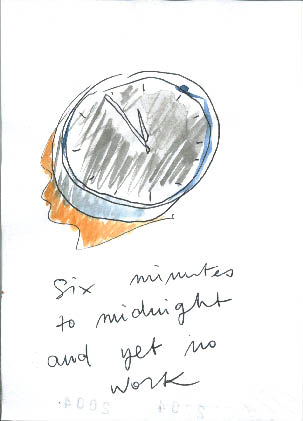 Six minutes
to midnight
and yet no
work